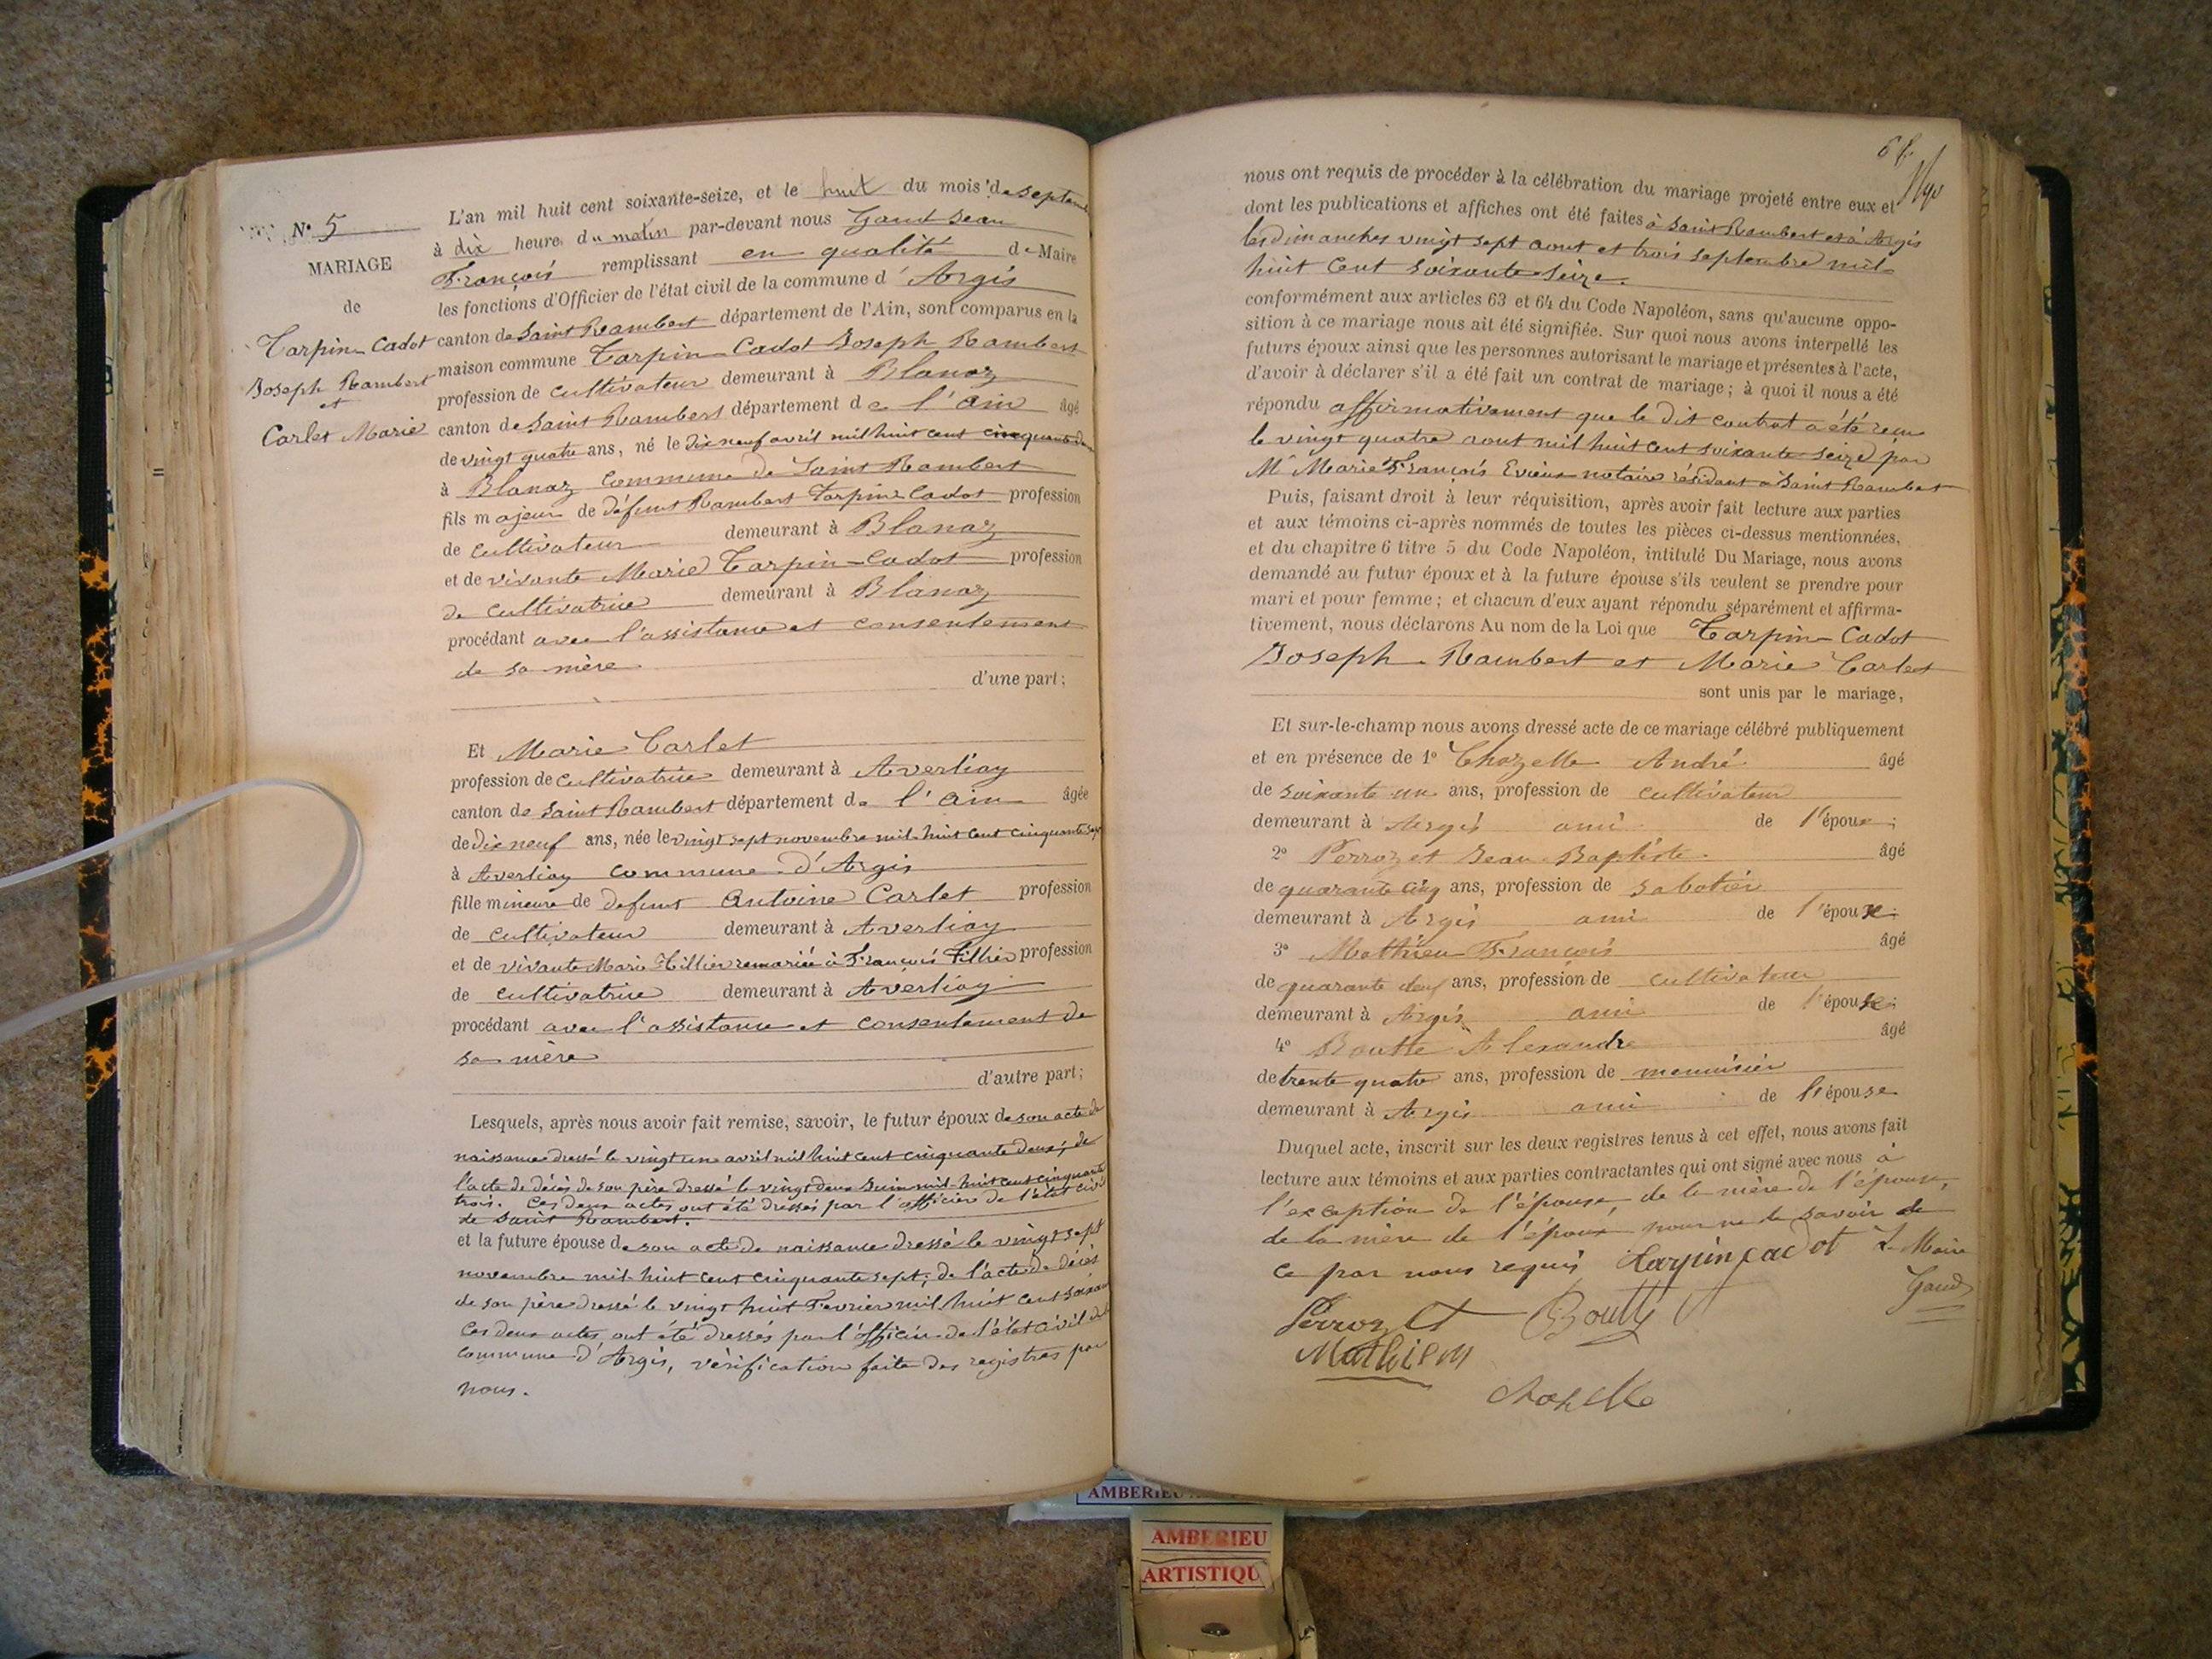 N° 5
MARIAGE
de
Tarpin-Cadot
Joseph Rambert
et
Carlet Marie
L'an mil huit cent soixante-seize, et le huit du mois de septembre
à dix heure du matin par-devant nous Gaud Jean
François remplissant en qualité de Maire
les fonctions d'Officier de l'état civil de la commune d'Argis
canton de Saint Rambert département de l'Ain, sont comparus en la
maison commune Tarpin-Cadot Joseph Rambert
profession de cultivateur demeurant à Blanaz
canton de Saint Rambert département de l'ain âgé
de vingt quatre ans, né le dix neuf avril mil huit cent cinquante deux
à Blanaz commune de Saint Rambert
fils majeur de défunt Rambert Tarpin-Cadot profession
de cultivateur demeurant à Blanaz
et de vivante Marie Tarpin-Cadot profession
de cultivatrice demeurant à Blanaz
procédant avec l'assistance et consentement
de sa mère
d'une part;
Et Marie Carlet
profession de cultivatrice demeurant à Averliaz
canton de Saint Rambert département de l'ain âgée
de dix neuf ans, née le vingt sept novembre mil huit cent cinquante sept
à Averliaz commune d'Argis
fille mineure de defunt Antoine Carlet profession
de cultivateur demeurant à Averliaz
et de vivante Marie Tillier remariée à François Tillier profession
de cultivatrice demeurant à Averliaz
procédant avec l'assistance et consentement de
sa mère
d'autre part;
Lesquels, après nous avoir fait remise, savoir, le futur époux de son acte de
naissance dressé le vingt un avril mil huit cent cinquante deux, de
l'acte de décès de son père dressé le vingt deux Juin mil huit cent cinquante
trois. Ces deux actes ont été dressés par l'officier de l'état civil
de Saint Rambert.
et la future épouse de son acte de naissance dressé le vingt sept
novembre mil huit cent cinquante sept; de l'acte de décès
de son père dressé le vingt huit Fevrier mil huit cent soixante
Ces deux actes ont été dressés par l'officier de l'état civil de la
commune d'Argis, vérification faite des registres par
nous.
nous ont requis de procéder à la célébration du mariage projeté entre eux et
dont les publications et affiches ont été faites à Saint Rambert et à Argis
les dimanches vingt sept aout et trois septembre mil
huit cent soixante seize.
conformément aux articles 63 et 64 du Code Napoléon, sans qu'aucune oppo-
sition à ce mariage nous ait été signifiée. Sur quoi nous avons interpellé les
futurs époux ainsi que les personnes autorisant le mariage et présentes à l'acte,
d'avoir à déclarer s'il a été fait un contrat de mariage; à quoi il nous a été
répondu affirmativement que le dit contrat a été reçu
le vingt quatre aout mil huit cent soixante seize par
Mr Marie François Evieux notaire résidant à Saint Rambert
Puis, faisant droit à leur réquisition, après avoir fait lecture aux parties
et aux témoins ci-après nommés de toutes les pièces ci-dessus mentionnées,
et du chapitre 6 titre 5 du Code Napoléon, intitulé Du Mariage, nous avons
demandé au futur époux et à la future épouse s'ils veulent se prendre pour
mari et pour femme; et chacun d'eux ayant répondu séparément et affirma-
tivement, nous déclarons Au nom de la Loi que Tarpin-Cadot
Joseph Rambert et Marie Carlet
sont unis par le mariage,
Et sur-le-champ nous avons dressé acte de ce mariage célébré publiquement
et en présence de 1° Chozelle André âgé
de soixante un ans, profession de cultivateur
demeurant à Argis ami de l'époux;
2° Perrozet Jean-Baptiste âgé
de quarante cinq ans, profession de sabotier
demeurant à Argis ami de l'épouse;
3° Mathieu François âgé
de quarante deux ans, profession de cultivateur
demeurant à Argis ami de l'épouse;
4° Boutte Alexandre âgé
de trente quatre ans, profession de menuisier
demeurant à Argis ami de l'épouse
Duquel acte, inscrit sur les deux registres tenus à cet effet, nous avons fait
lecture aux témoins et aux parties contractantes qui ont signé avec nous à
l'exception de l'épouse, de la mère de l'épouse,
de la mère de l'époux pour ne le savoir de
ce par nous requis Tarpin Cadot Le Maire
Gaud
Perrozet Boutty
Mathieu
Chozelle
AMBERIEU
AMBERIEU
ARTISTIQU